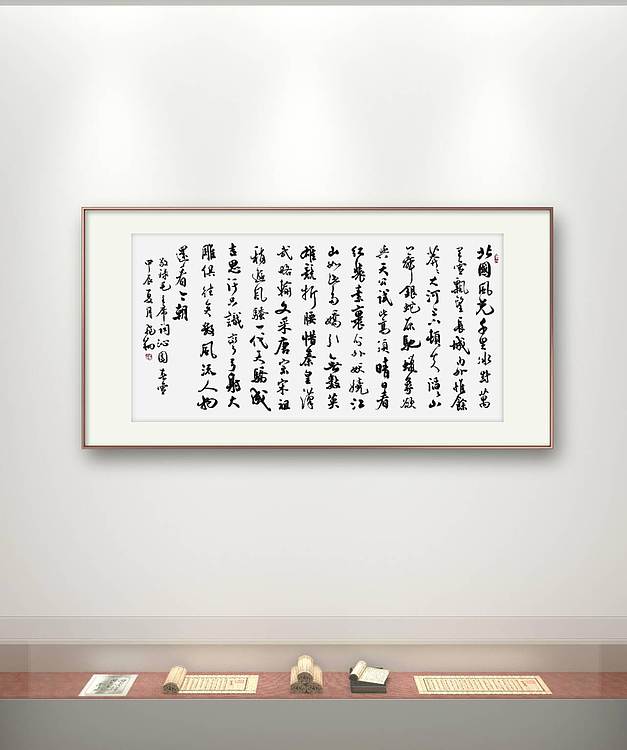 北國風光千里冰封萬
里雪飄望長城內外惟餘
莽〻大河上下頓失滔〻山
舞銀蛇原馳蠟象欲
與天公試比高須晴日看
紅裝素裹分外妖嬈江
山如此多嬌引無數英
雄競折腰惜秦皇漢
武略輸文采唐宗宋祖
稍遜風騷一代天驕成
吉思汗只識彎弓射大
雕俱往矣數風流人物
還看今朝
敬錄毛主席詞沁園春雪
甲辰夏月